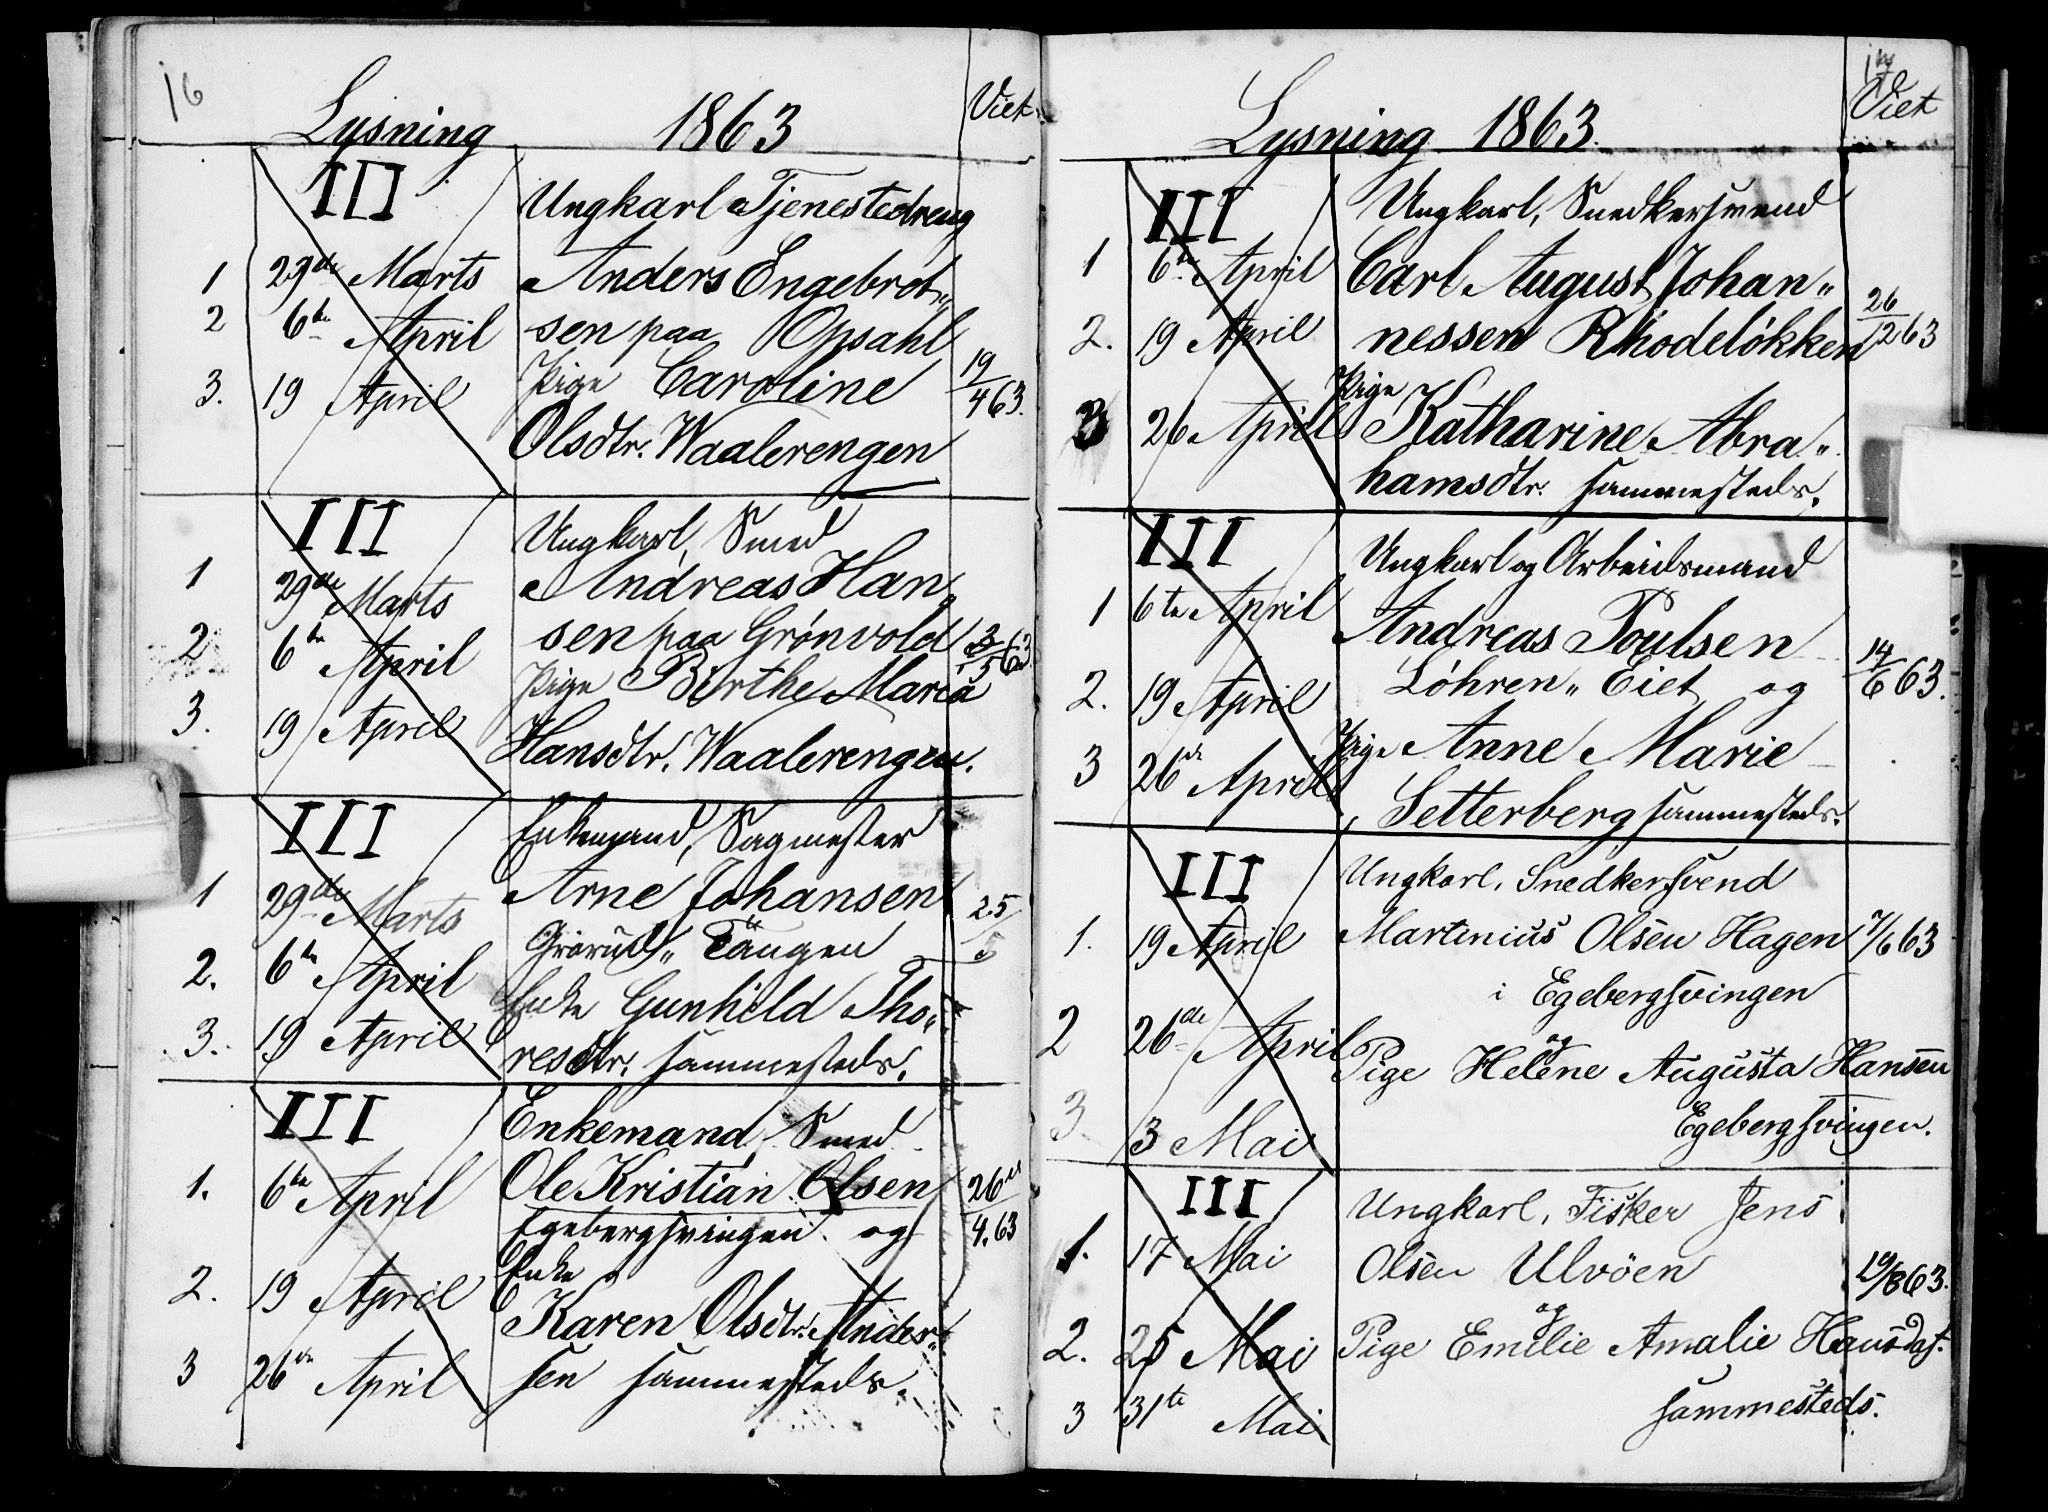 16
Lysning 1863 Viet
III Ungkarl Tjenestedreng
1 29de Marts Anders Engebret„
2 6te April sen paa Opsahl
3. 19 April Pige Caroline 19/4 63.
Olsdtr. Waalerengen
III Ungkarl, Smed
1 29de Marts Andreas Han„
2 6te April sen paa Grønvold 3/5 63
Pige Birthe Maria
3. 19 April Hansdtr. Waalerengen.
III Enkemand, Sagmester
1 29de Marts Arne Johansen 25/5
2. 6te April Grorud„ Tangen
Enke Gunhild Tho„
3. 19 April resdtr. sammesteds.
III Enkemand, Smed
1. 6te April Ole Kristian Olsen 26de/4. 63
Egebergsvingen og
Enke
2. 19 April Karen Olsdtr. Ander„
3 26de April sen sammesteds.
17
Lysning 1863. Viet
III Ungkarl, Snedkersvend
1 6te April Carl August Johan„
2. 19 April nessen Rhodeløkken 26/12 63
Pige
3 26 April Katharine Abra„
hamsdtr. sammesteds.
III Ungkarl og Arbeidsmand
1 6te April Andreas Poulsen
2. 19 April Løhren„ Eiet og 14/6 63.
3 26de April Pige Anne Marie
Setterberg sammesteds.
III Ungkarl, Snedkersvend
1. 19 April Martinius Olsen Hagen 7/6 63
i Egebergsvingen
og
2 26de April Pige Helene Augusta Hansen
3. 3 Mai Egebergsvingen.
III Ungkarl, Fisker Jens
1. 17 Mai Olsen Ulvöen 19/8 63.
og
2. 25 Mai Pige Emilie Amalie Hansdat.
3 31te Mai sammesteds.